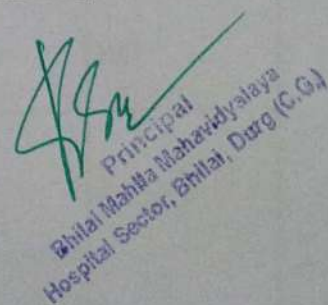 Principal
Bhilai Mahila Mahavidyalaya
Hospital Sector, Bhilai, Durg (C.G.)